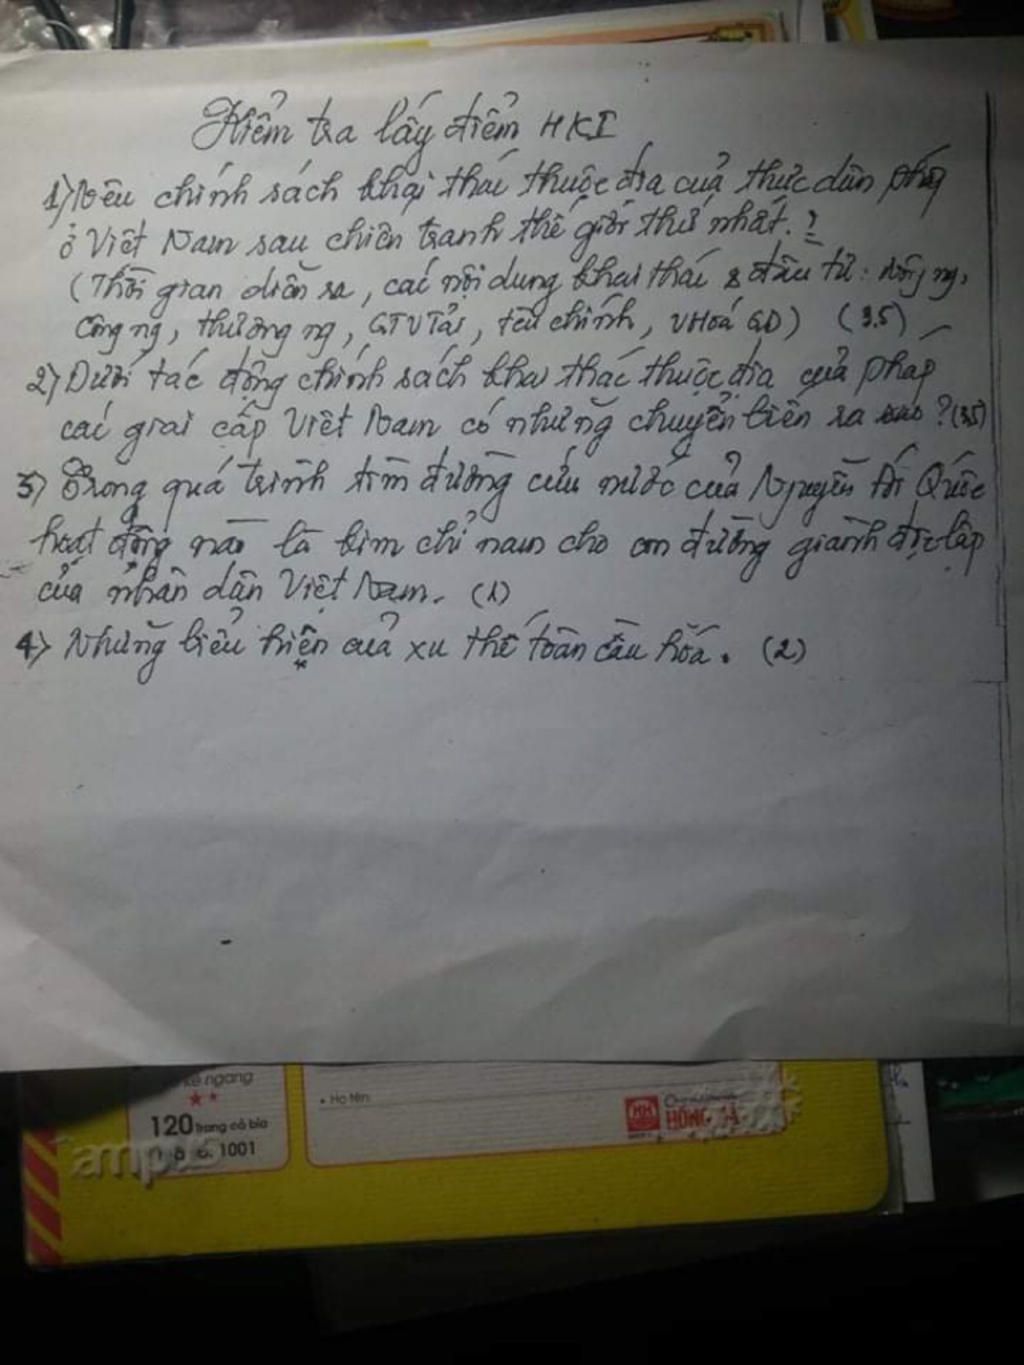 Kiểm tra lấy điểm HKI
1) Nêu chính sách khai thác thuộc địa của thực dân Pháp
ở Việt Nam sau chiến tranh thế giới thứ nhất.?
(Thời gian diễn ra, các nội dung khai thác & đầu tư: nông ng,
công ng, thương ng, GTVTải, tài chính, VHoá GD) (3.5)
2) Dưới tác động chính sách khai thác thuộc địa của Pháp
các giai cấp Việt Nam có những chuyển biến ra sao? (3.5)
3) Trong quá trình tìm đường cứu nước của Nguyễn Ái Quốc
hoạt động nào là kim chỉ nam cho con đường giành độc lập
của nhân dân Việt Nam. (1)
4) Những biểu hiện của xu thế toàn cầu hóa. (2)
kẻ ngang
120 trang cả bìa
1001
• Họ tên:
HỒNG HÀ
ampus